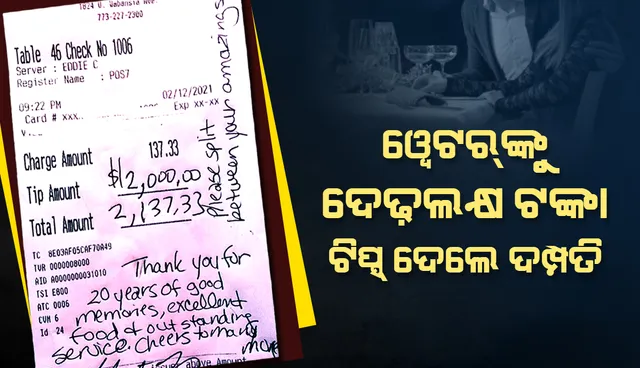 1824 W. Wabansia Ave.
773-227-2300
Table 46 Check No 1006
Server : EDDIE C
Register Name : POS7
09:22 PM 02/12/2021
Card # xxx... Exp xx-xx
Charge Amount 137.33
Tip Amount $2,000.00
Total Amount 2,137.33
Please split
between your amazings
TC 8E03AF05CAF70A49
TVR 0000008000
AID A0000000031010
TSI E800
ATC 0006
CVM 6
Id 24
Thank you for
20 years of good
memories, excellent
food & outstanding
service. Cheers to many
more
above Amount
ୱେଟରଙ୍କୁ
ଦେଢ଼ଲକ୍ଷ ଟଙ୍କା
ଟିପ୍ସ ଦେଲେ ଦମ୍ପତି